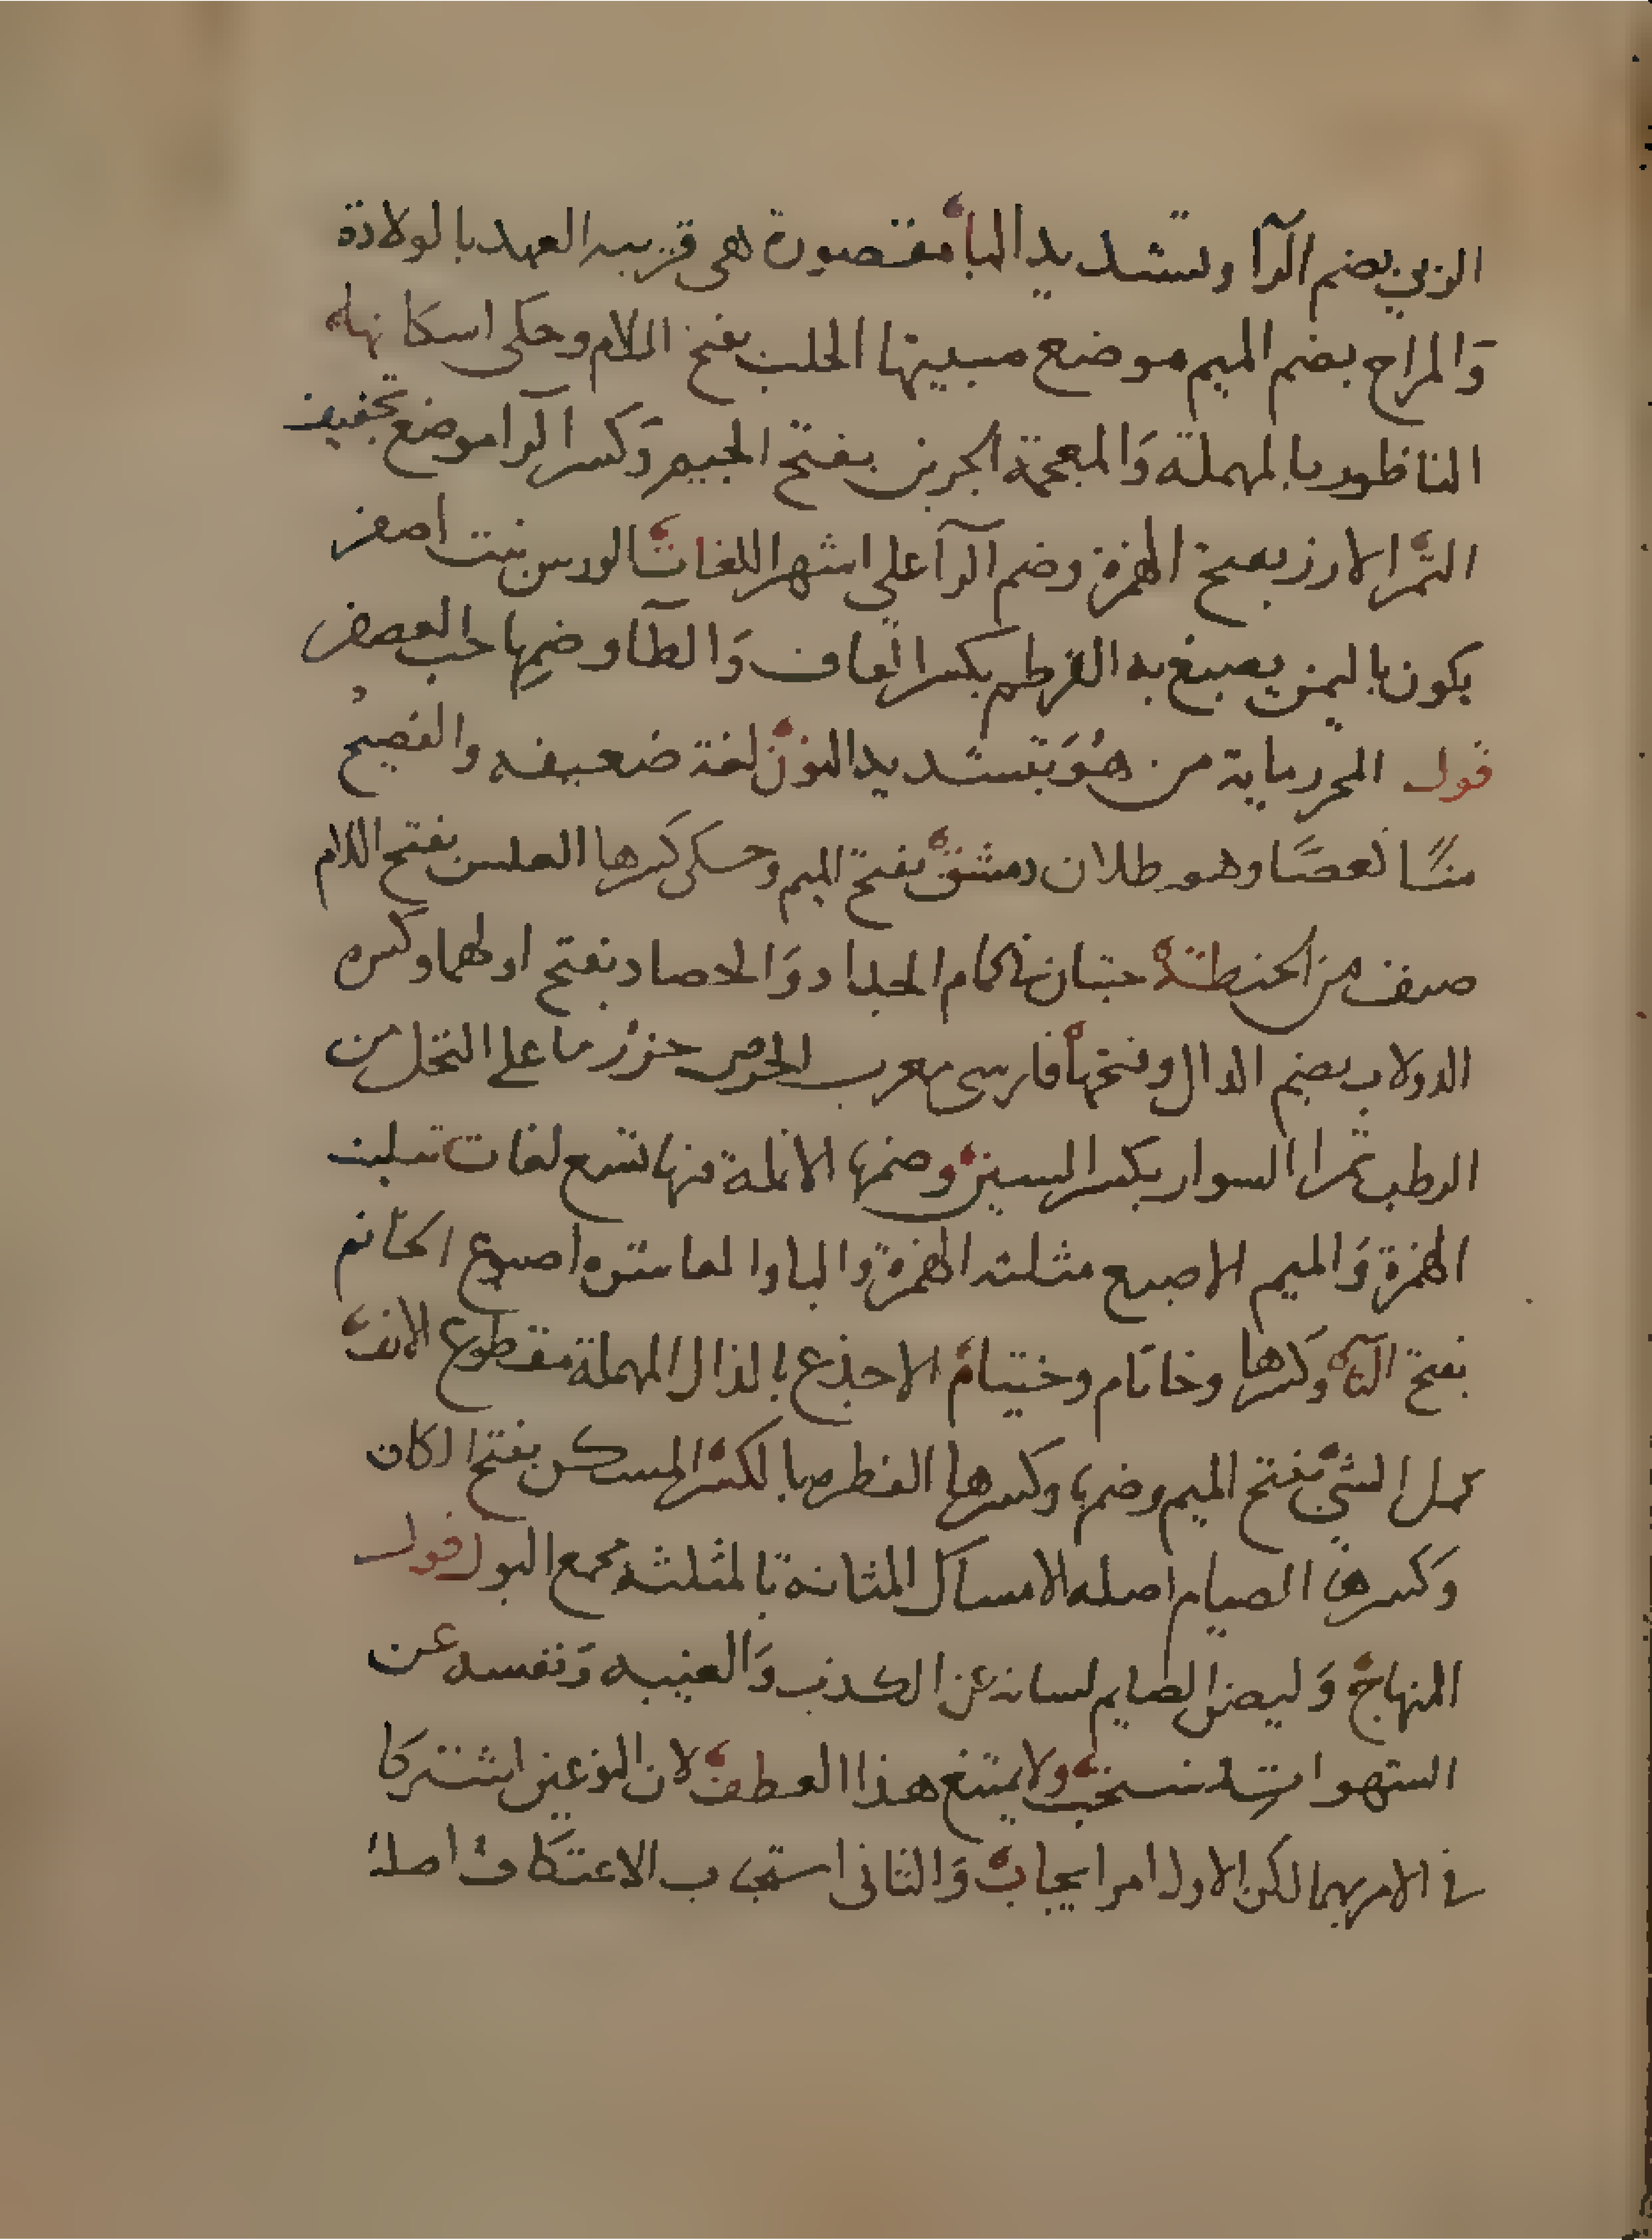 الربي بضم الرآ وتشديد البا مقصورة هي قريبه العهد بالولادة
وَالمراح بضم الميم موضع مبيتها الحلب بفتح اللام وحكى اسكانها
الناطور بالمهملة وَالمعجمة الجرين بفتح الجيم وَكسر الرا موضع تجفيف
التمر الارز بفتح الهمزة وضم الرآ على اشهر اللغات الورس نبت اصفر
يكون باليمن يصبغ به القرطم بكسر القاف وَالطآ وضمها حب العصفر
قول المحرر ماية من هُوَ بتشديد النون لغة ضعيفه والفصيح
منًا كعصًا وهو رطلان دمشق بفتح الميم وحكى كسرها العلس بفتح اللام
صنف من الحنطة حبتان في كمام الجداد وَالحصاد بفتح اولهما وكسره
الدولاب بضم الدال وفتحها فارسى معرب الخرص حزر ما على النخل من
الرطب تمرا السوار بكسر السين وضمها الانملة فيها تسع لغات تثليث
الهمزة وَالميم الاصبع مثلثه الهمزة والبا والعاشره اصبوع الخاتم
بفتح التآ وكسرها وخاتام وختيام الاجذع بالذال المهملة مقطوع الانف
كمل الشي بفتح الميم وضمها وكسرها الفطره بالكسر المسكن بفتح الكاف
وَكسرها الصيام اصله الامساك المثانة بالمثلثه مجمع البول قول
المنهاج وَليصن الصايم لسانه عن الكذب وَالغيبه وَنفسه عن
الشهوات نسخه ولا يمتنع هذا العطف لان النوعين اشتركا
في الامر بهما لكن الاول امر ايجاب وَالثانى استحباب الاعتكاف اصله